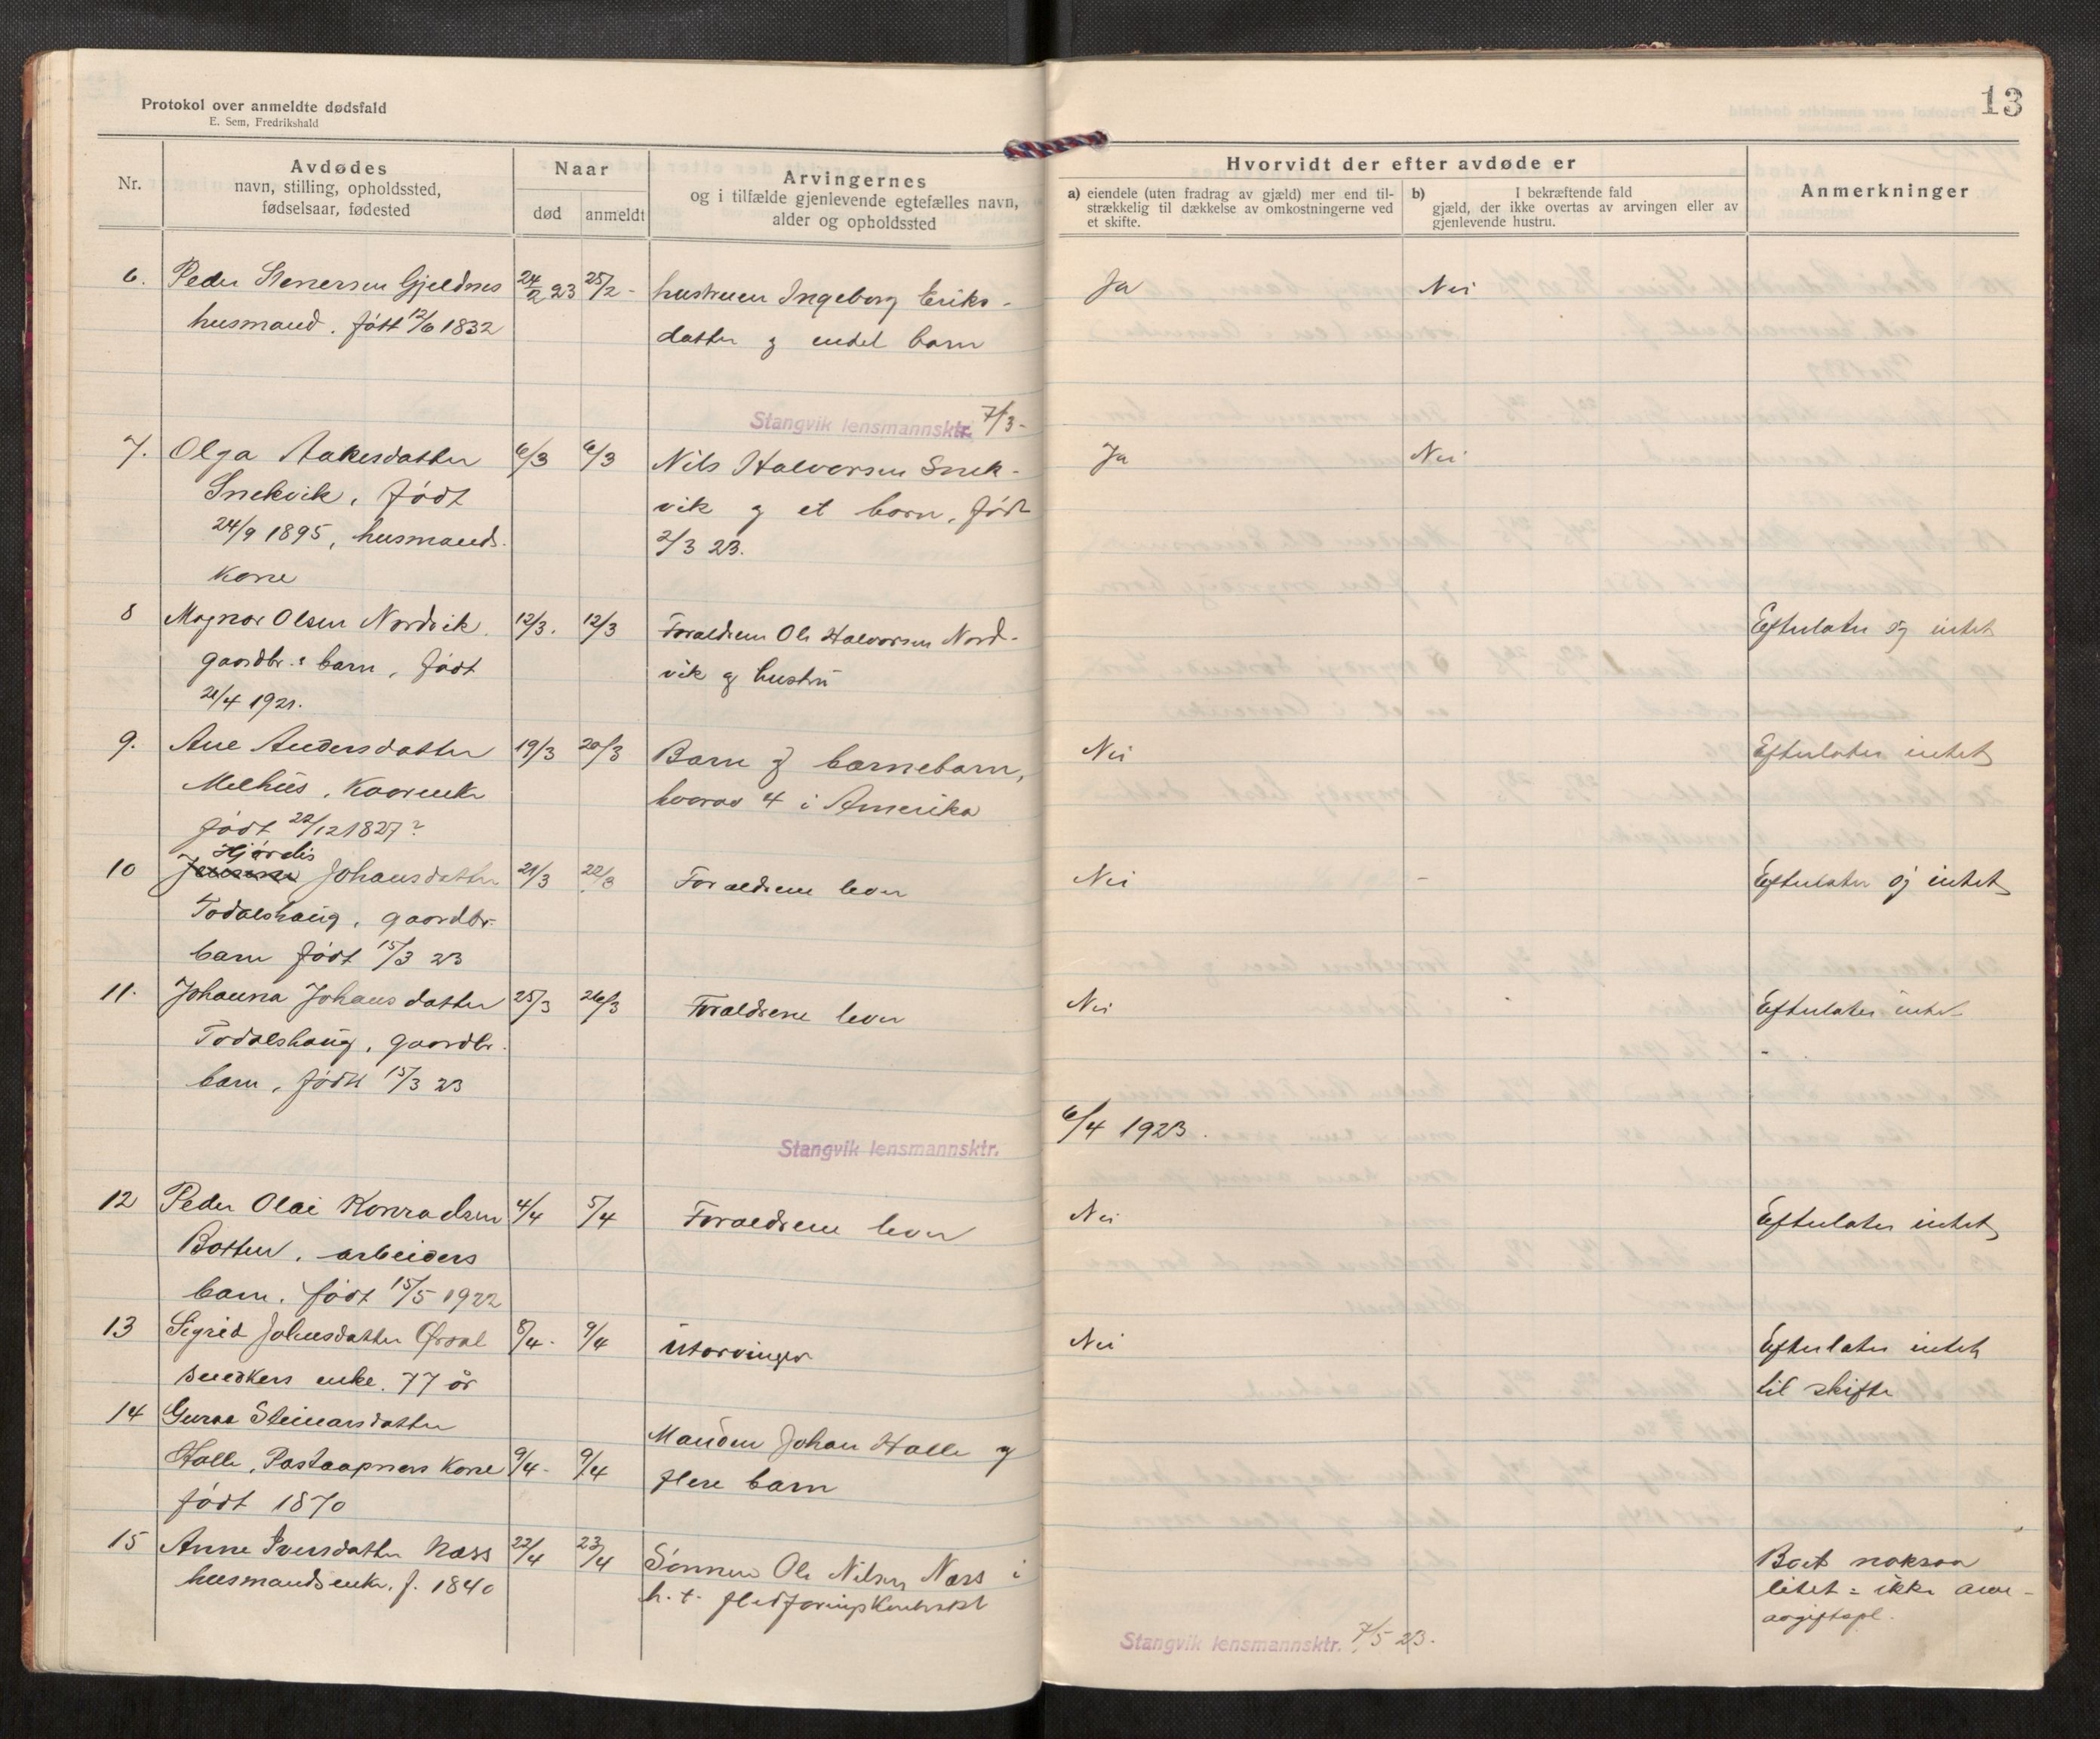 Protokol over anmeldte dødsfald
E. Sem, Fredrikshald
13
Nr.
Avdødes
navn, stilling, opholdssted,
fødselsaar, fødested
Naar
død
anmeldt
Arvingernes
og i tilfælde gjenlevende egtefælles navn,
alder og opholdssted
Hvorvidt der efter avdøde er
a) eiendele (uten fradrag av gjæld) mer end til-
strækkelig til dækkelse av omkostningerne ved
et skifte.
b) I bekræftende fald
gjæld, der ikke overtas av arvingen eller av
gjenlevende hustru.
Anmerkninger
6. Peder Stenersen Gjeldnes 24/2 23 25/2 - hustruen Ingeborg Eriks- Ja Nei
husmand. født 12/6 1832
datter og endel barn
Stangvik lensmannsktr. 7/3 -
7. Olga Aakesdatter 6/3 6/3 Nils Halvorsen Snek- Ja Nei
Snekvik, født
vik og et barn, født
24/9 1895, husmands.
2/3 23.
kone
8 Magnar Olsen Nordvik. 12/3. 12/3 Foraldrene Ole Halvorsen Nord- Efterlater sig intet
gaardbr.s barn, født
vik og hustru
21/4 1921.
9. Ane Andersdatter 19/3 20/3 Barn og barnebarn, Nei Efterlater intet
Melhus, Kaarenke
hvorav 4 i Amerika
født 22/12 1827?
Hjørdis
10 Johansdatter 21/3 22/3 Foraldrene lever Nei - Efterlater sig intet
Todalshaug, gaardbr.
barn født 15/3 23
11. Johanna Johansdatter 25/3 26/3 Foraldrene lever Nei Efterlater intet
Todalshaug, gaardbr.
barn, født 15/3 23
Stangvik lensmannsktr. 6/4 1923.
12 Peder Olai Konradsen 4/4 5/4 Foraldrene lever Nei Efterlater intet
Botten, arbeiders
barn. født 15/5 1922
13 Sigrid Johnsdatter Ørsal 8/4 - 9/4 Utarvinger Nei Efterlater intet
snedkers enke. 77 år
til skifte
14 Guroe Steinarsdatter
Halle, Postaapners kone 9/4 - 9/4 Manden Johan Halle og
født 1870
flere barn
15 Anne Iversdatter Næss 22/4 23/4 Sønnen Ole Nilsen Næss i Boet noksaa
husmandsenke. f. 1840
h. t. fledføringskontrakt
litet = ikke arve-
avgiftspl.
Stangvik lensmannsktr. 7/5 23.